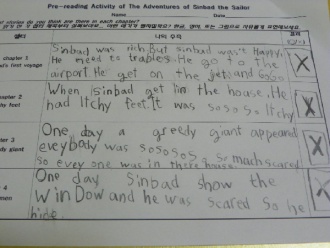 Pre-reading Activity of The Adventures of Sinbad the Sailor
Name
Date
stories do you think are there in each chapter?
챕터
나의 추측
chapter 1
first voyage
Sinbad was rich. But sinbad wasn't Happy.
He need to trables. He go to the
airport. He get on the Jet, and
chapter 2
hy feet
When Sinbad get in the house. He
had Itchy feet. It was So So So Itchy
ter 3
giant
One day a greedy giant appeared
eveybody was so so so so so much scared
so evey one was in there house.
4
men
One day Sinbad show the
WinDow and he was scared So he
hide.